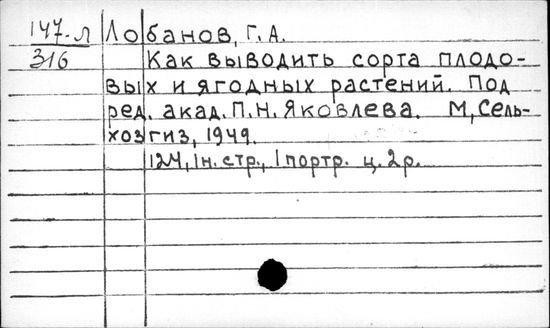 147-л Лобанов, Г.А.
316 Как выводить сорта плодо-
вых и ягодных растений. Под
ред. акад. П.Н. Яковлева. М, Сель-
хозгиз, 1949.
124, 1н. стр., 1 портр. ц. 2р.